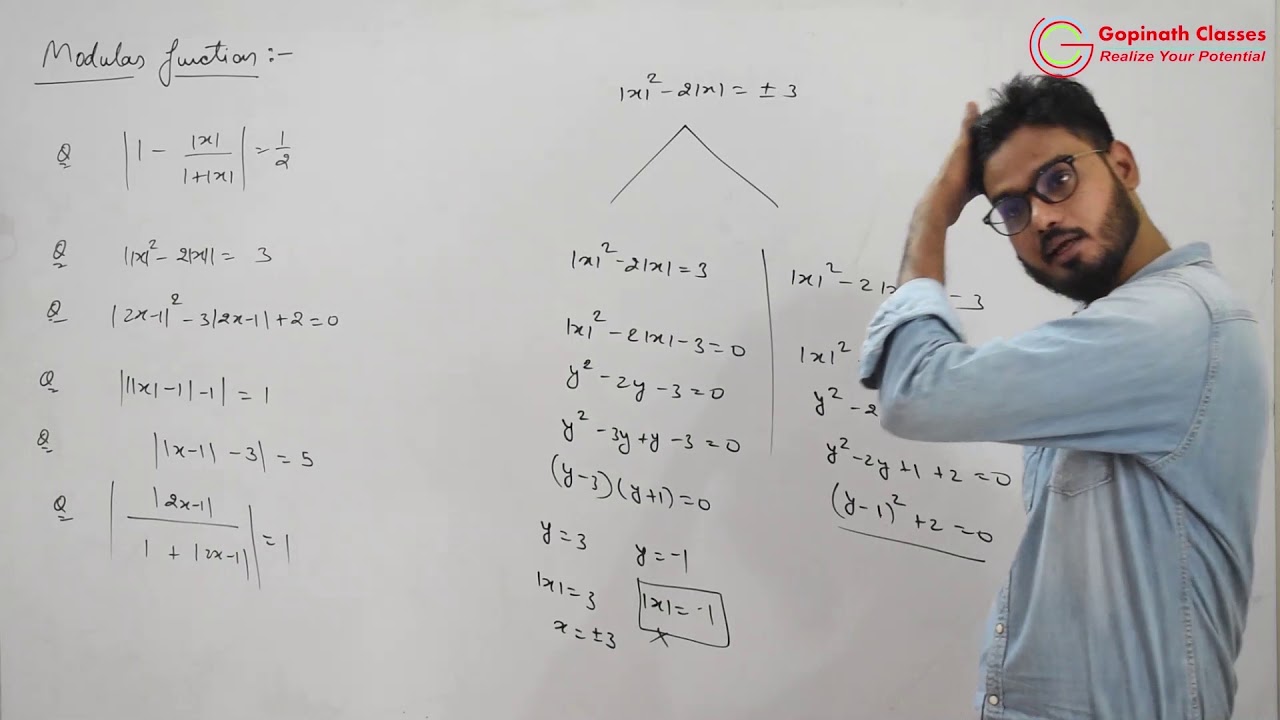 Gopinath Classes
Realize Your Potential
Modulas function :-
Q |1 - |x|/(1+|x|)| = 1/2
Q ||x|² - 2|x|| = 3
Q |2x-1|² - 3|2x-1| + 2 = 0
Q |||x| - 1| - 1| = 1
Q ||x-1| - 3| = 5
Q ||2x-1|/(1 + |2x-1|)| = 1
|x|² - 2|x| = ± 3
|x|² - 2|x| = 3
|x|² - 2|x| - 3 = 0
y² - 2y - 3 = 0
y² - 3y + y - 3 = 0
(y-3)(y+1) = 0
y = 3 y = -1
|x| = 3 |x| = -1
x = ±3 x
|x|² - 2|x - 3
|x|²
y² - 2
y² - 2y + 1 + 2 = 0
(y-1)² + 2 = 0